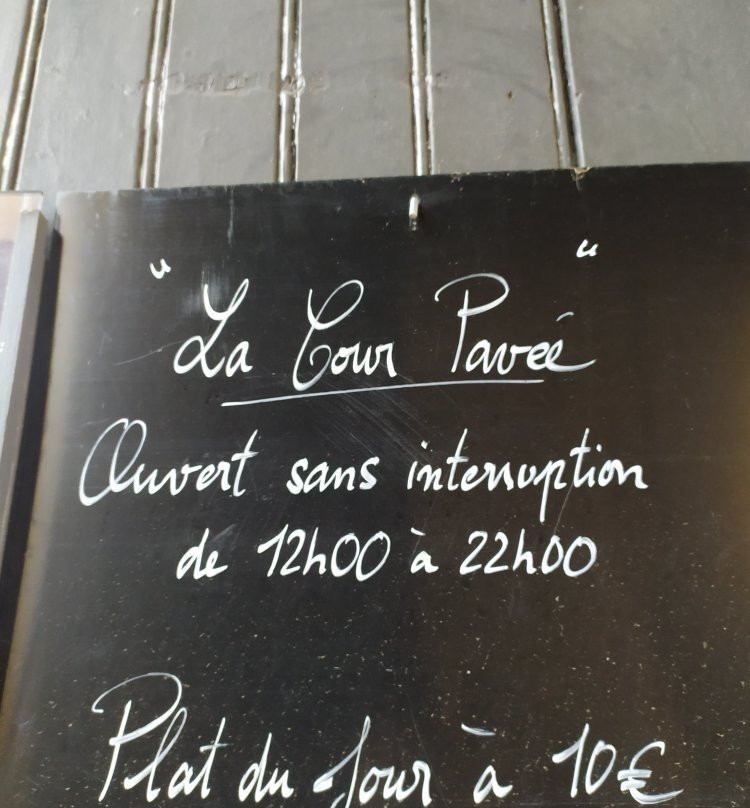 "La Cour Pavée"
Ouvert sans interruption
de 12h00 à 22h00
Plat du Jour à 10€